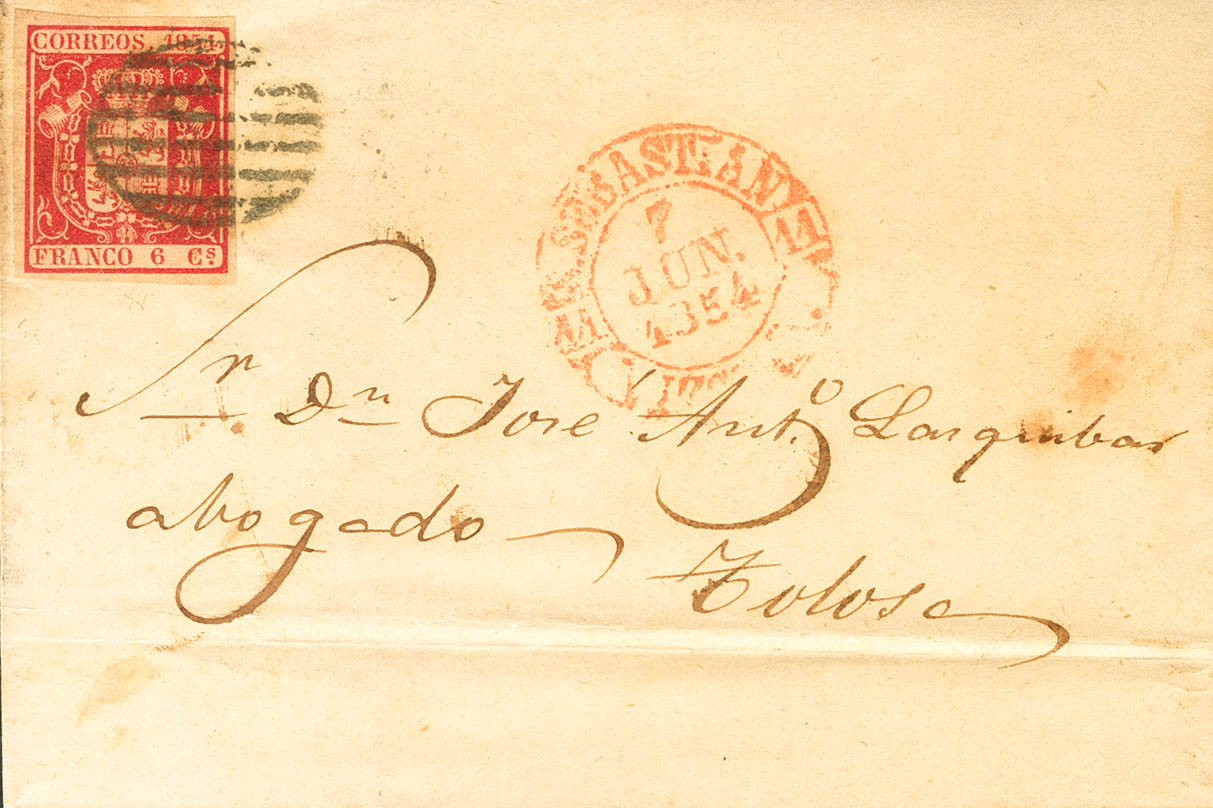 CORREOS 1854
FRANCO 6 Cs.
SEBASTIAN 11
7
JUN.
1854
Sr. Dn José Ant.º Larquibar
abogado
Tolosa